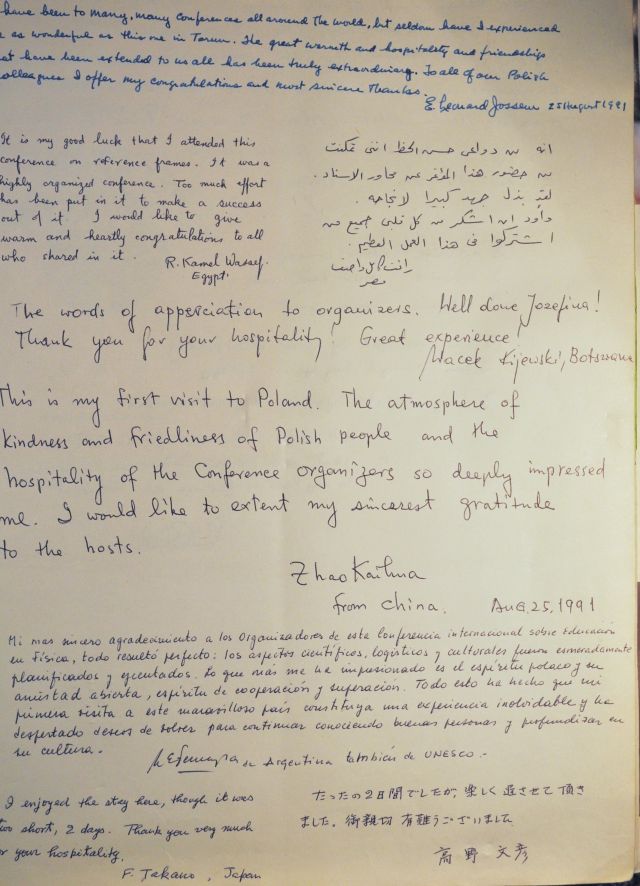 have been to many, many conferences all around the world, but seldom have I experienced
as wonderful as this one in Torun. The great warmth and hospitality and friendships
at have been extended to us all has been truly extraordinary. To all of our Polish
olleagues I offer my congratulations and most sincere thanks.
E. Leonard Jossem 25 August 1991
It is my good luck that I attended this
conference on reference frames. It was a
highly organized conference. Too much effort
has been put in it to make a success
out of it. I would like to give
warm and heartly congratulations to all
who shared in it.
R. Kamel Wassef.
Egypt.
انه من دواعى حسن الحظ اننى تمكنت
من حضور هذا المؤتمر عن محاور الاسناد.
لقد بذل جهد كبيرا لانجاحه.
وأود ان اشكر من كل قلبى جميع من
اشتركوا فى هذا العمل العظيم.
مصر
The words of apperciation to organizers. Well done Jozefina!
Thank you for your hospitality! Great experience!
Wacek Kijewski, Botswana
This is my first visit to Poland. The atmosphere of
kindness and friedliness of Polish people and the
hospitality of the Conference organizers so deeply impressed
me. I would like to extent my sincerest gratitude
to the hosts.
Zhao Kaihua
from China. Aug. 25, 1991
Mi mas sincero agradecimiento a los Organizadores de esta Conferencia internacional sobre Educación
en Física, todo resultó perfecto: los aspectos científicos, logísticos y culturales fueron esmeradamente
planificados y ejecutados. Lo que más me ha impresionado es el espíritu polaco y su
amistad abierta, espíritu de cooperación y superación. Todo esto ha hecho que mi
primera visita a este maravilloso país constituya una experiencia inolvidable y ha
despertado deseos de volver para continuar conociendo buenas personas y profundizar en
su cultura.
de Argentina también de UNESCO.-
I enjoyed the stay here, though it was
too short, 2 days. Thank you very much
or your hospitality.
F. Takano, Japan
たったの2日間でしたが、楽しく過させて頂き
ました。御親切 有難うございました
高野 文彦